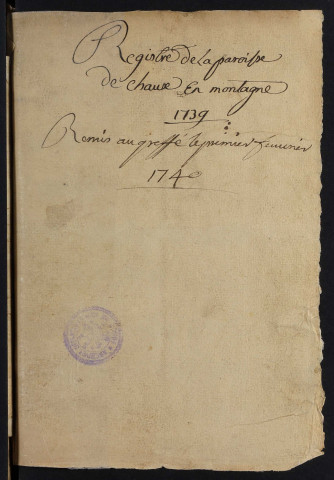 Registre de la paroisse
de chaux En montagne
1739
Remis au greffe le premier feuvrier
1740